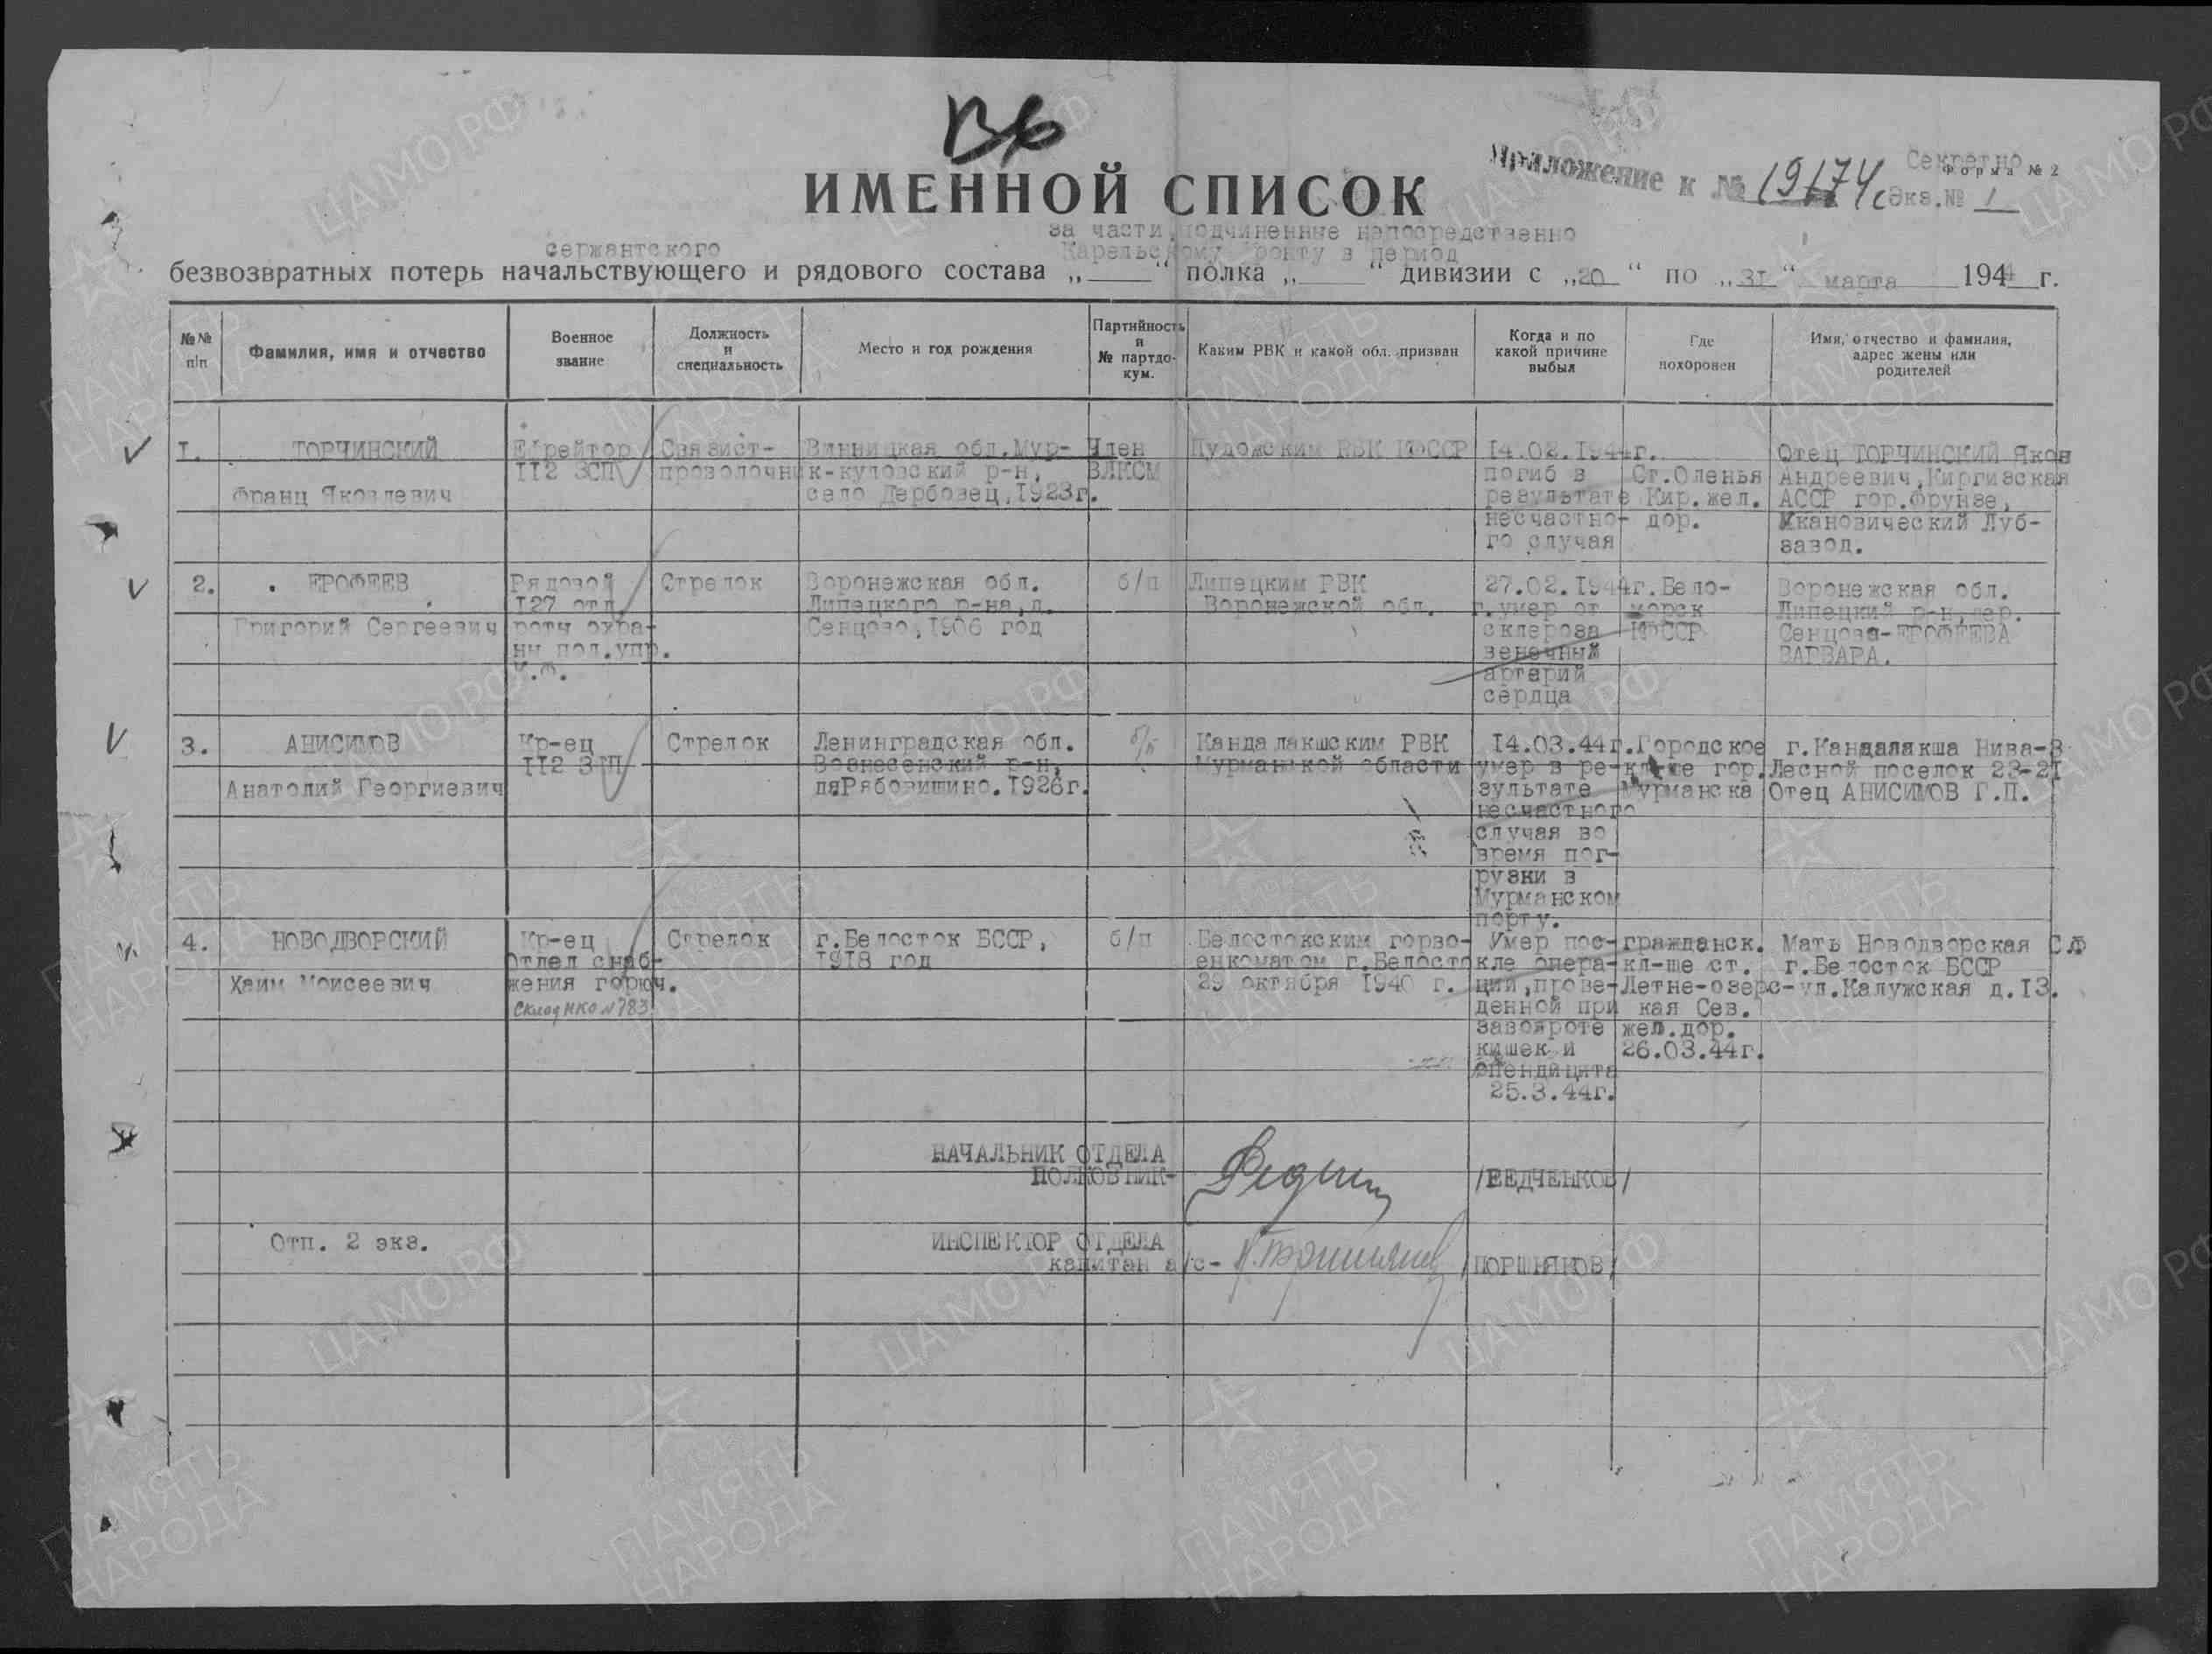 Вб
Приложение к № 19174с
Секретно
Форма № 2
Экз.№ 1
ИМЕННОЙ СПИСОК
за части, подчиненные непосредственно
сержантского
Карельскому фронту в период
безвозвратных потерь начальствующего и рядового состава „ “ полка „ “ дивизии с „20“ по „31“ марта 1944 г.
№№ п/п
Фамилия, имя и отчество
Военное звание
Должность и специальность
Место и год рождения
Партийность и № партдокум.
Каким РВК и какой обл. призван
Когда и по какой причине выбыл
Где похоронен
Имя, отчество и фамилия, адрес жены или родителей
I.
ТОРЧИНСКИЙ
Франц Яковлевич
Ефрейтор
II2 ЗСП
Связист-
проволочник
Винницкая обл.Мур-
-куловский р-н,
село Дербовец,I923г.
Член
ВЛКСМ
Пудожским РВК КФССР
I4.02.I944г.
погиб в
результате
несчастно-
го случая
Ст.Оленья
Кир.жел.
дор.
Отец ТОРЧИНСКИЙ Яков
Андреевич,Киргизская
АССР гор.Фрунзе,
Луб-
завод.
2.
ЕРОФЕЕВ
Григорий Сергеевич
Рядовой
I27 отд.
роты охра-
ны пол.упр.
К.Ф.
Стрелок
Воронежская обл.
Липецкого р-на,д.
Сенцово,I906 год
б/п
Липецким РВК
Воронежской обл.
27.02.I944г.
г.умер от
склероза
венечный
артерий
сердца
Бело-
морск
КФССР
Воронежская обл.
Липецкий р-н,дер.
Сенцова-ЕРОФЕЕВА
ВАРВАРА.
3.
АНИСИМОВ
Анатолий Георгиевич
Кр-ец
II2 ЗСП
Стрелок
Ленинградская обл.
Вознесенский р-н,
дяРябовишино.I926г.
б/п
Кандалакшским РВК
Мурманской области
I4.03.44г.
умер в ре-
зультате
несчастного
случая во
время пог-
рузки в
Мурманском
порту.
Городское
кл-ще гор.
Мурманска
г.Кандалакша Нива-3
Лесной поселок 23-2I
Отец АНИСИМОВ Г.П.
4.
НОВОДВОРСКИЙ
Хаим Моисеевич
Кр-ец
Отдел снаб-
жения горюч.
Склад НКО №783
Стрелок
г.Белосток БССР,
I9I8 год
б/п
Белостокским горво-
енкоматом г.Белосток
29 октября I940 г.
Умер пос-
ле опера-
ции,прове-
денной при
завороте
кишек и
апендицита
25.3.44г.
гражданск.
кл-ще ст.
Летне-озерс-
кая Сев.
жел.дор.
26.03.44г.
Мать Новодворская С.Ф
г.Белосток БССР
ул.Калужская д.I3.
НАЧАЛЬНИК ОТДЕЛА
ПОЛКОВНИК-
/ФЕДЧЕНКОВ/
Отп. 2 экз.
ИНСПЕКТОР ОТДЕЛА
капитан а/с-
/ПОРШНЯКОВ/
ЦАМО.РФ
ПАМЯТЬ НАРОДА